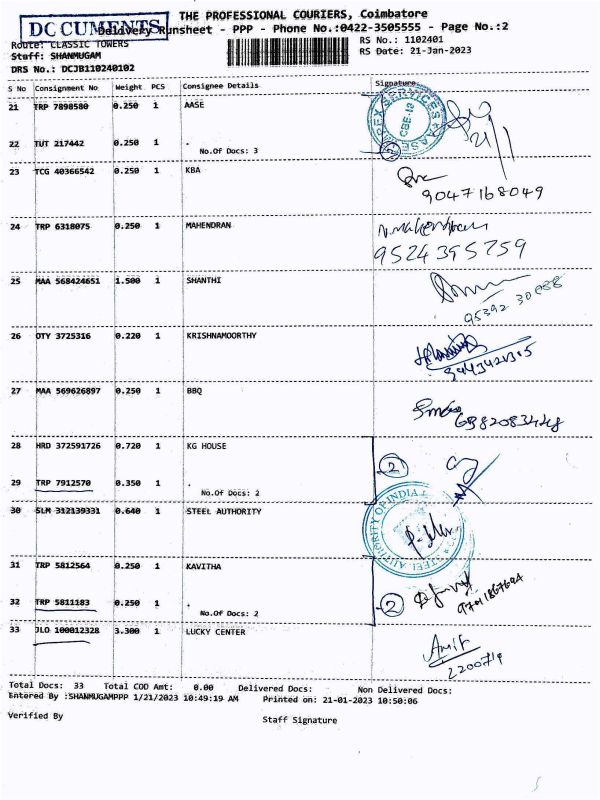 THE PROFESSIONAL COURIERS, Coimbatore
DOCUMENTS
Delivery Runsheet - PPP - Phone No.:0422-3505555 - Page No.:2
Route: CLASSIC TOWERS
RS No.: 1102401
Staff: SHANMUGAM
RS Date: 21-Jan-2023
DRS No.: DCJB110240102
S No Consignment No Weight PCS Consignee Details Signature
21 TRP 7898580 0.250 1 AASE
22 TUT 217442 0.250 1 .
No.Of Docs: 3
21/1
23 TCG 40366542 0.250 1 KBA
9047168049
24 TRP 6318075 0.250 1 MAHENDRAN
9524395759
25 MAA 568424651 1.500 1 SHANTHI
95392 30888
26 OTY 3725316 0.220 1 KRISHNAMOORTHY
27 MAA 569626897 0.250 1 BBQ
28 HRD 372591726 0.720 1 KG HOUSE
2
29 TRP 7912570 0.350 1 .
No.Of Docs: 2
30 SLM 312139331 0.640 1 STEEL AUTHORITY
STEEL AUTHORITY OF INDIA
31 TRP 5812564 0.250 1 KAVITHA
32 TRP 5811183 0.250 1 .
No.Of Docs: 2
2
33 JLO 100012328 3.300 1 LUCKY CENTER
Amit
Total Docs: 33 Total COD Amt: 0.00 Delivered Docs: Non Delivered Docs:
Entered By :SHANMUGAMPPP 1/21/2023 10:49:19 AM Printed on: 21-01-2023 10:50:06
Verified By Staff Signature